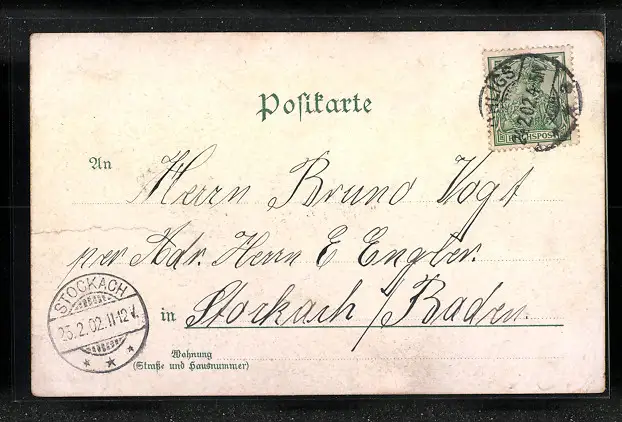 OHLIGS
2.02.4-5N
REICHSPOST
Postkarte
An
Herrn Bruno Vogt
per Adr. Herrn E Engler.
in Stockach / Baden.
STOCKACH
25.2.02.11-12V.
Wohnung
(Straße und Hausnummer)